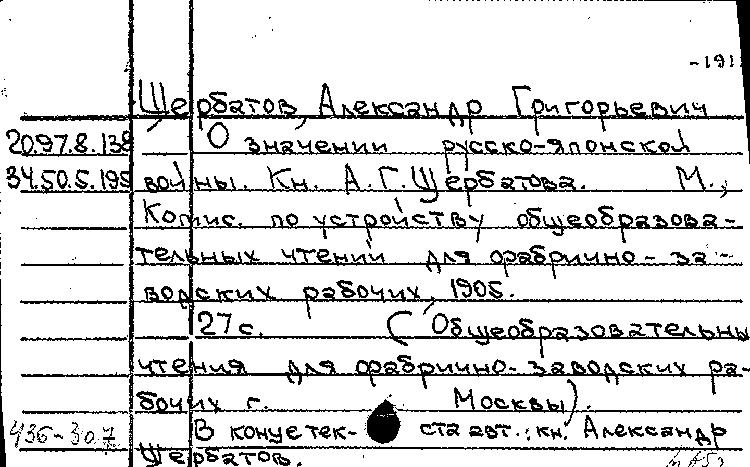 -191
Щербатов, Александр Григорьевич
20.97.8.138 О значении русско-японской
34.50.5.195 войны. Кн. А.Г.Щербатова. М.,
Комис. по устройству общеобразова-
тельных чтений для фабрично-за-
водских рабочих, 1905.
27 с. (Общеобразовательны
чтения для фабрично-заводских ра-
бочих г. Москвы).
436-30.7 В конце тек- ста авт.: кн. Александр
Щербатов.